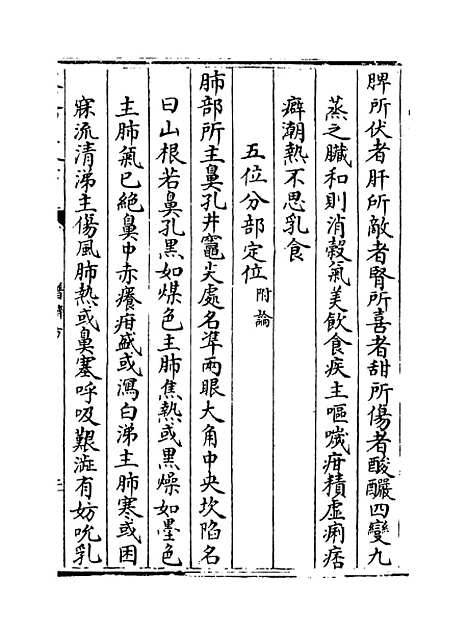 脾所伏者肝所敵者腎所喜者甜所傷者酸釅四變九
蒸之臟和則消穀氣美飲食疾主嘔噦疳積虛痢痞
癖潮熱不思乳食
五位分部定位附論
肺部所主鼻孔井竈尖處名準兩眼大角中央坎陷名
曰山根若鼻孔黑如煤色主肺焦熱或黑燥如墨色
主肺氣已絕鼻中赤癢疳盛或瀉白涕主肺寒或困
寐流清涕主傷風肺熱或鼻塞呼吸艱澁有妨吮乳
普濟方